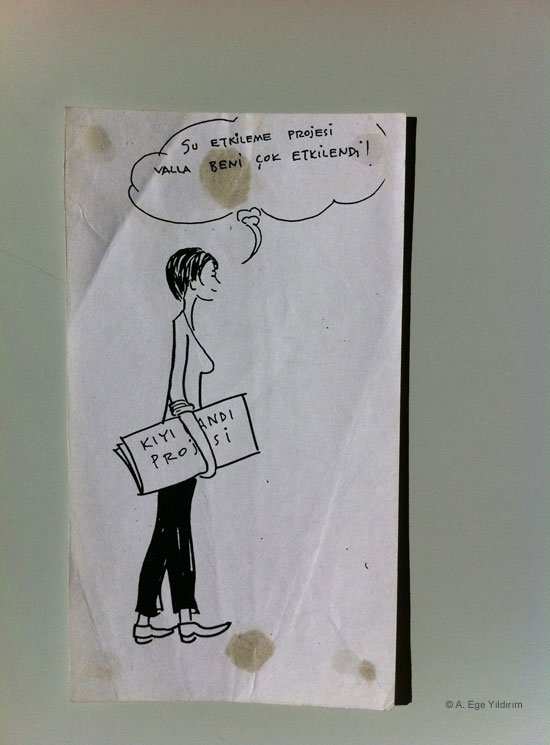 ŞU ETKİLEME PROJESİ
VALLA BENİ ÇOK ETKİLENDİ!
KIYI ANDI
PROJ Sİ
© A. Ege Yıldırım